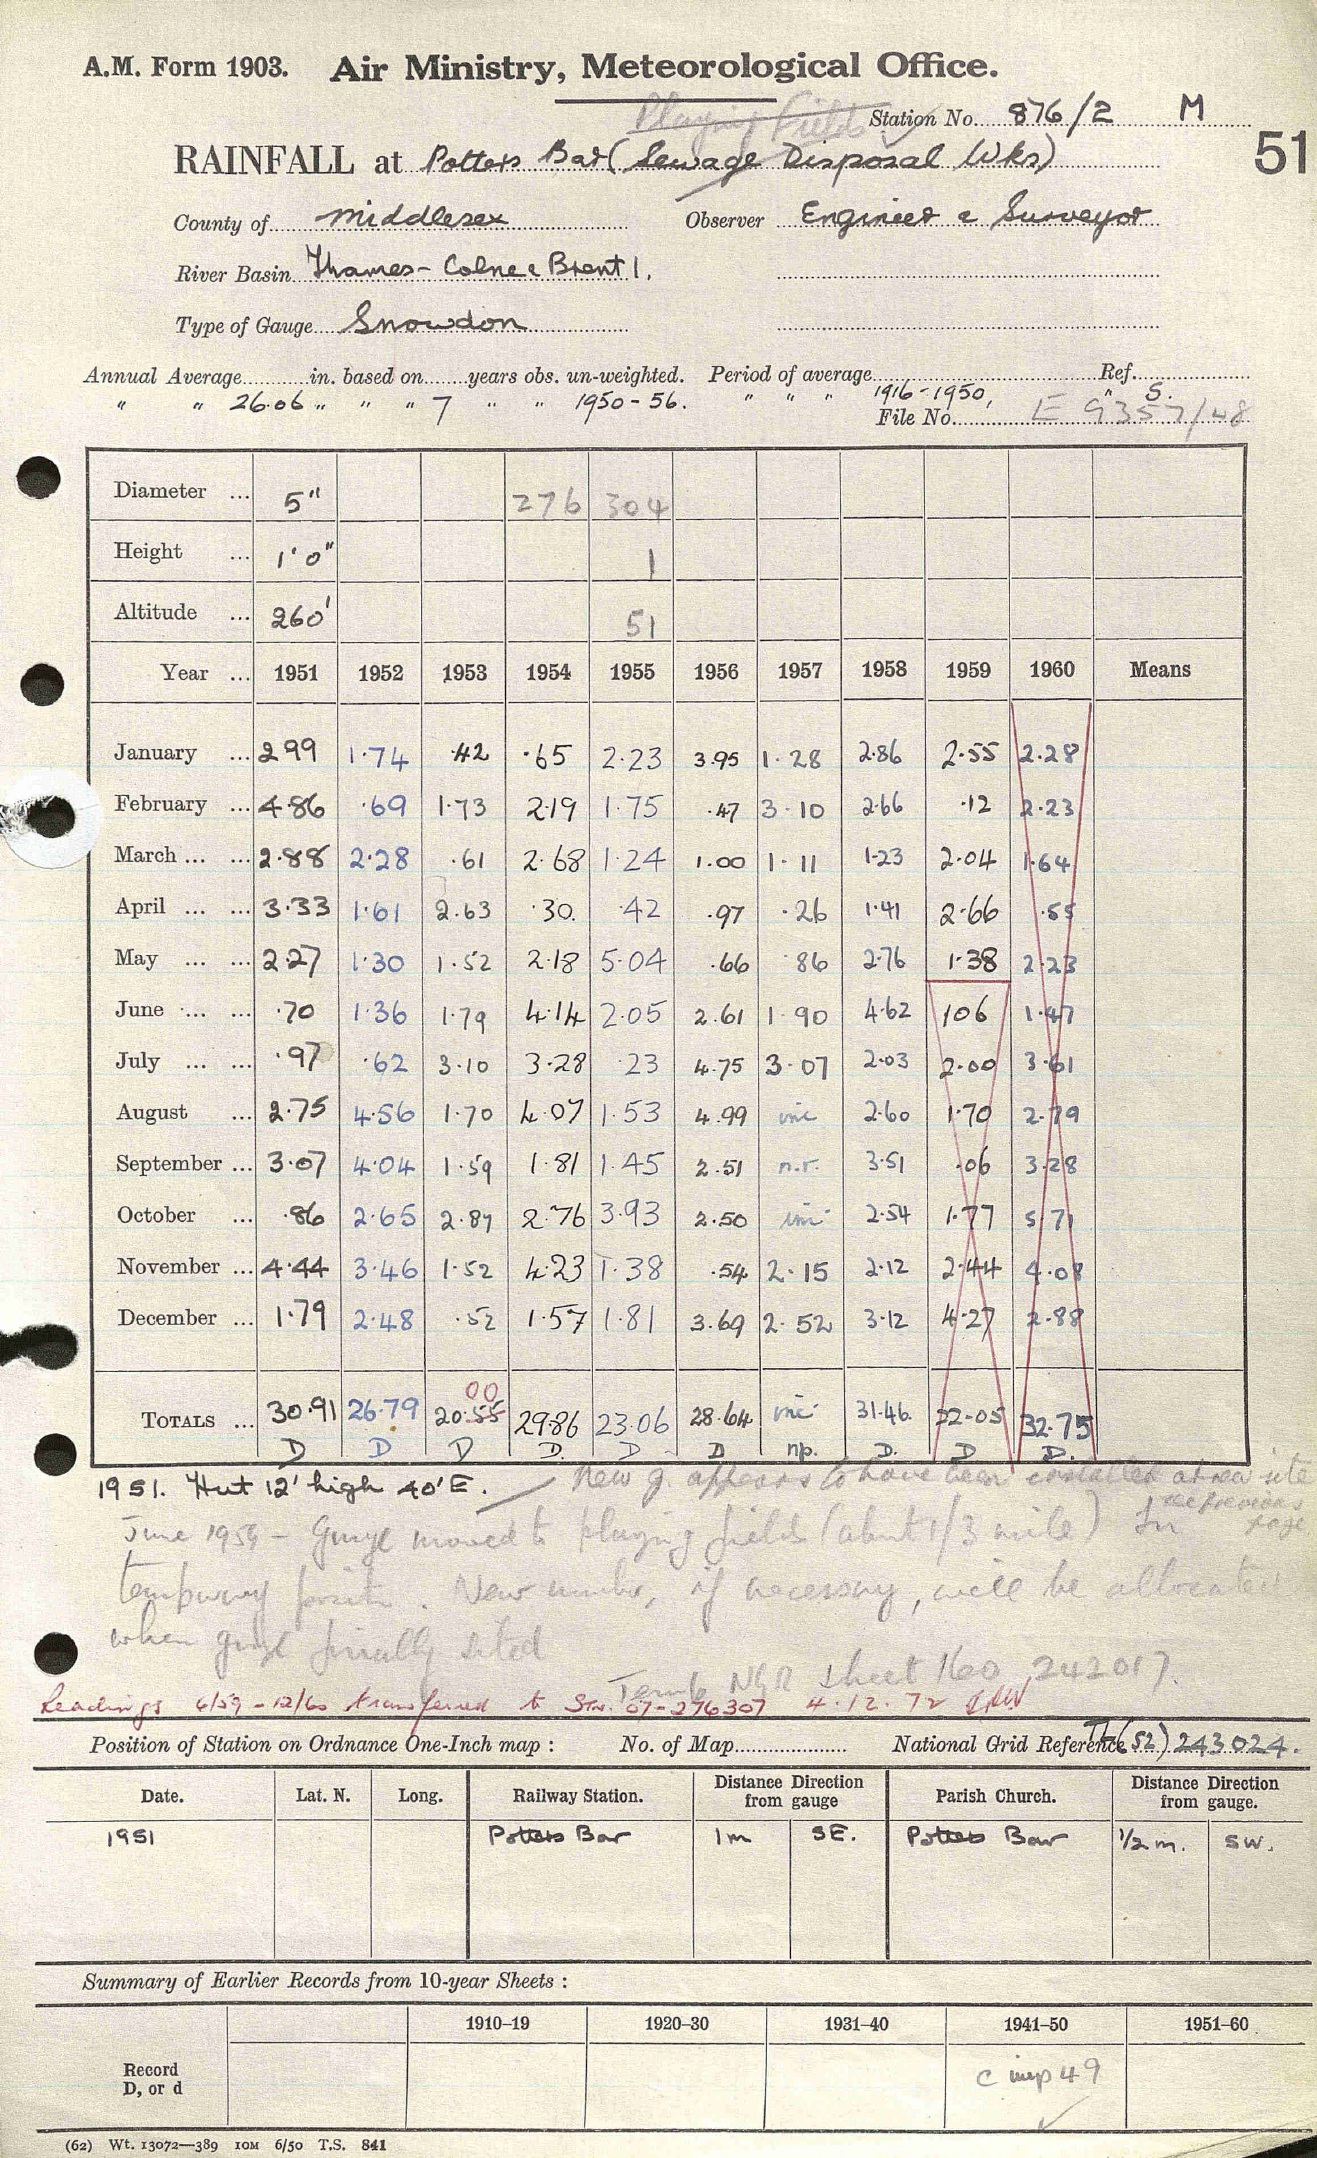 A.M. Form 1903. Air Ministry, Meteorological Office.
Playing Fields
Station No. 876/2 M
51
RAINFALL at Potters Bar (Sewage Disposal Wks)
County of Middlesex Observer Engineer & Surveyor
River Basin Thames - Colne & Brent 1.
Type of Gauge Snowdon
Annual Average in. based on years obs. un-weighted. Period of average Ref.
" " 26.06 " " " 7 " " 1950-56. " " " 1916-1950, " S.
File No. E 9357/48
Diameter ... 5" 276 304
Height ... 1'0" 1
Altitude ... 260' 51
Year ... 1951 1952 1953 1954 1955 1956 1957 1958 1959 1960 Means
January ... 2.99 1.74 .42 .65 2.23 3.95 1.28 2.86 2.55 2.28
February ... 4.86 .69 1.73 2.19 1.75 .47 3.10 2.66 .12 2.23
March ... ... 2.88 2.28 .61 2.68 1.24 1.00 1.11 1.23 2.04 1.64
April ... ... 3.33 1.61 2.63 .30 .42 .97 .26 1.41 2.66 .55
May ... ... 2.27 1.30 1.52 2.18 5.04 .66 .86 2.76 1.38 2.23
June ... ... .70 1.36 1.79 4.14 2.05 2.61 1.90 4.62 1.06 1.47
July ... ... .97 .62 3.10 3.28 .23 4.75 3.07 2.03 2.00 3.61
August ... 2.75 4.56 1.70 4.07 1.53 4.99 inc 2.60 1.70 2.79
September ... 3.07 4.04 1.59 1.81 1.45 2.51 n.r. 3.51 .06 3.28
October ... .86 2.65 2.87 2.76 3.93 2.50 inc 2.54 1.77 5.71
November ... 4.44 3.46 1.52 4.23 1.38 .54 2.15 2.12 2.44 4.08
December ... 1.79 2.48 .52 1.57 1.81 3.69 2.52 3.12 4.27 2.88
00
TOTALS ... 30.91 26.79 20.55 29.86 23.06 28.64 inc 31.46 22.05 32.75
D D D D. D D np. D. D D.
1951. Hut 12' high 40'E. New g. appears to have been installed at new site
see previous page
June 1959 - Gauge moved to playing fields (about 1/3 mile) in
temporary position. New number, if necessary, will be allocated
when gauge finally sited
Temp NGR sheet 160 242017.
Readings 6/59-12/60 transferred to Stn. 07-276307 4.12.72
Position of Station on Ordnance One-Inch map : No. of Map National Grid Reference TL(52) 243024.
Date. Lat. N. Long. Railway Station. Distance Direction from gauge Parish Church. Distance Direction from gauge.
1951 Potters Bar 1m SE. Potters Bar 1/2 m. SW.
Summary of Earlier Records from 10-year Sheets :
1910–19 1920–30 1931–40 1941–50 1951–60
Record
D, or d
c imp 49
(62) Wt. 13072—389 10M 6/50 T.S. 841